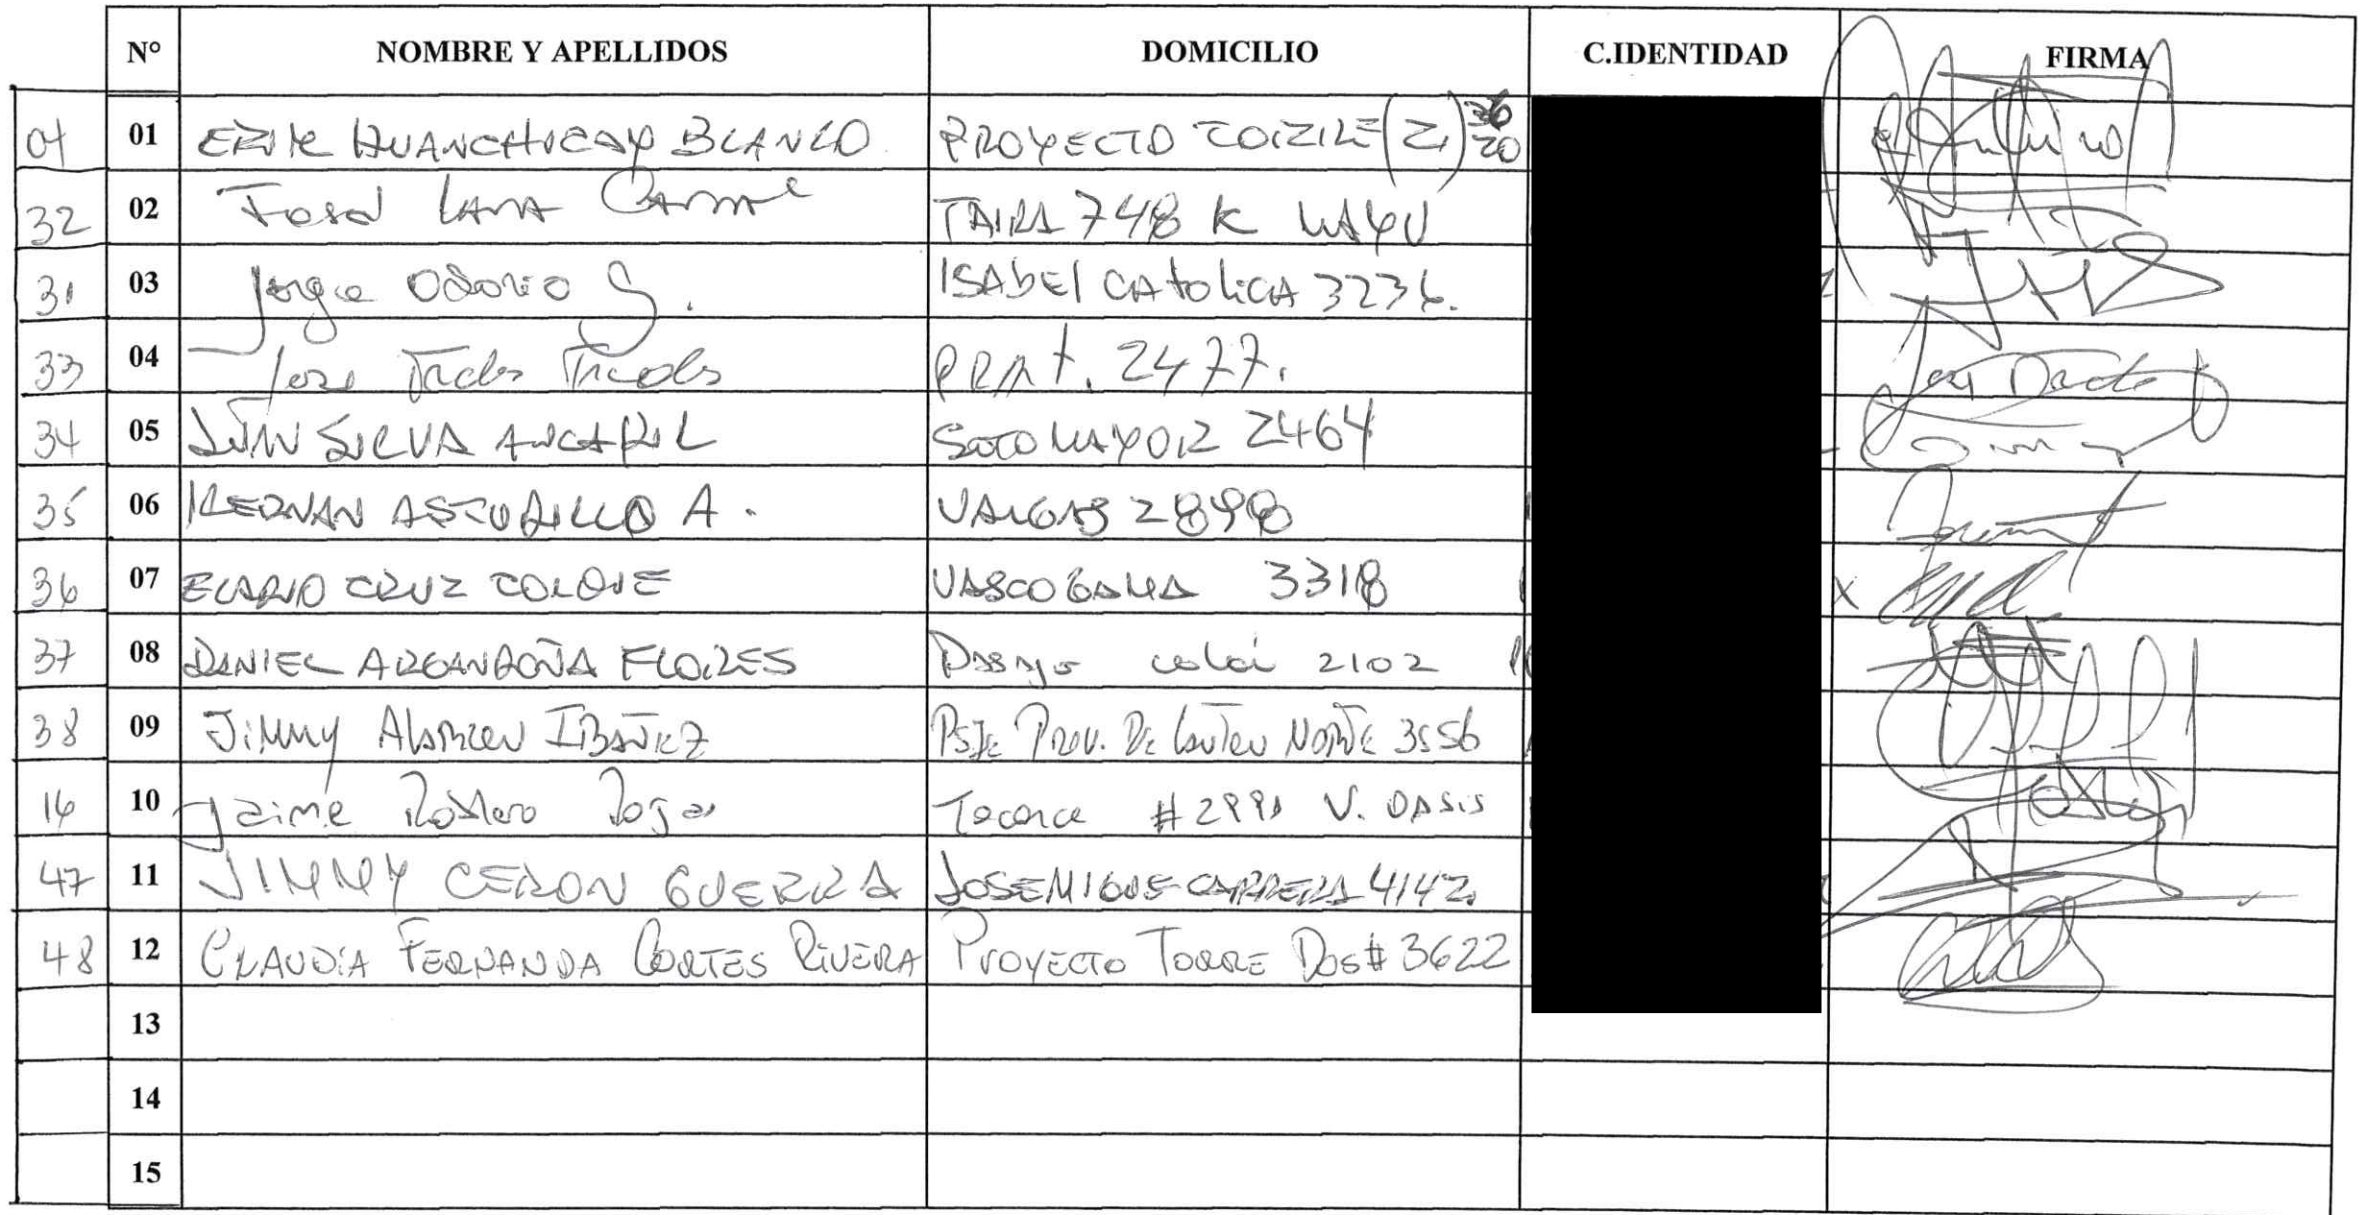 N° NOMBRE Y APELLIDOS DOMICILIO C.IDENTIDAD FIRMA
01 01 ERIK HUANCHICAY BLANCO PROYECTO (2) 3620
32 02 José LAMA TAIRA 748 K MAYU
31 03 Jorge Osorio S. ISAbEl CAtoliCA 3236.
33 04 Jose PRAt. 2477.
34 05 JUAN SILVA ANCAPIL SOTOMAYOR 2464
35 06 HERNAN ASTUDILLO A. VARGAS 2898
36 07 ELARIO CRUZ COLQUE VASCO GAMA 3318 X
37 08 DANIEL ARGANDOÑA FLORES Pasaje 2102
38 09 JiMMy AlARCON IBAÑEZ PSJE PROV. DE CAUTEN NORTE 3556
16 10 Jaime Rojas Toconce # 2991 V. OASIS
47 11 JIMMY CERON GUERRA JOSE MIGUE CARRERA 4142
48 12 CLAUDiA FERNANDA CORTES RiVERA PROYECTO TORRE DOS # 3622
13
14
15